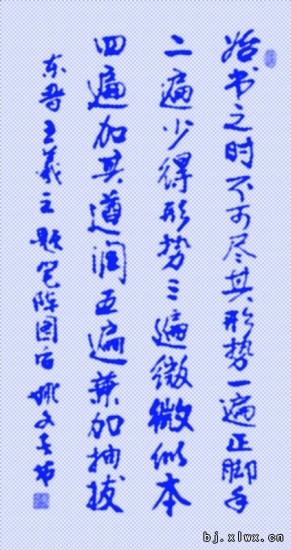 始书之时不可尽其形势一遍正脚手
二遍少得形势三遍微微似本
四遍加其遒润五遍兼加抽拔
东晋王羲之题笔阵图后 姚文春书
bj.xlwx.cn